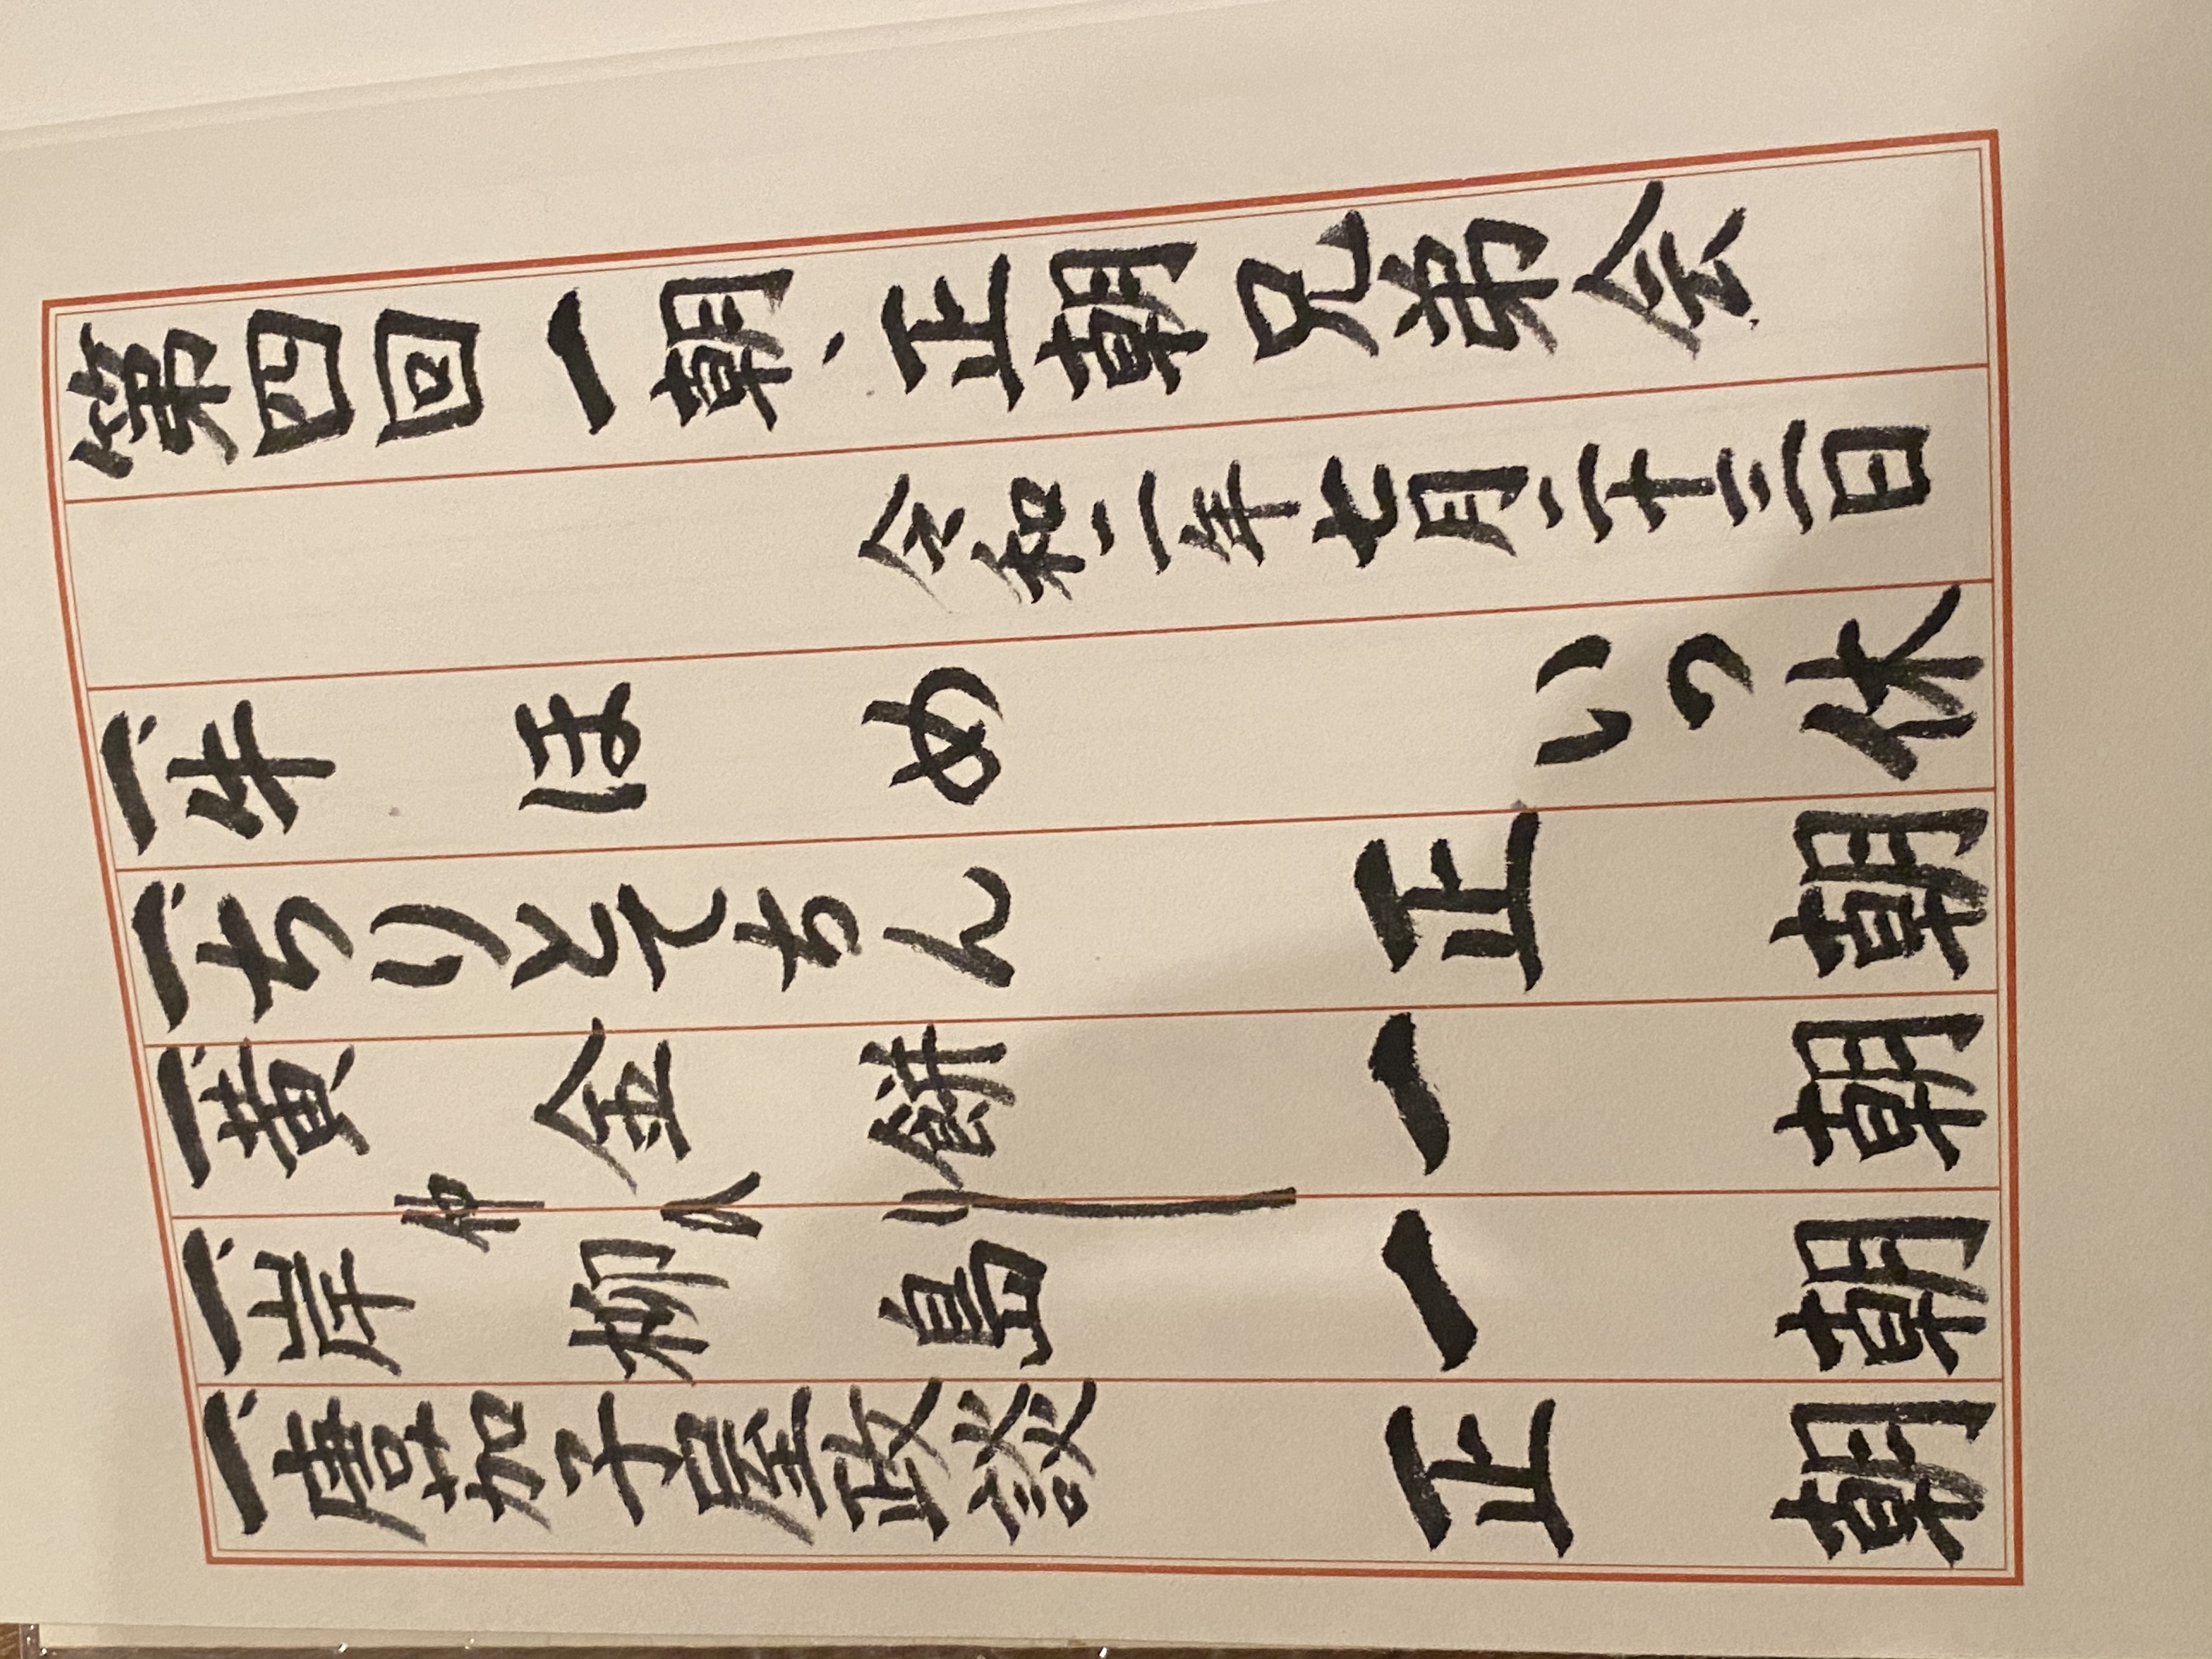 第四回一朝、正朝兄弟会
令和二年七月二十三日
一、牛ほめ いっ休
一、ちりとてちん 正朝
一、黄金餅 一朝
仲入り
一、岸柳島 一朝
一、唐茄子屋政談 正朝